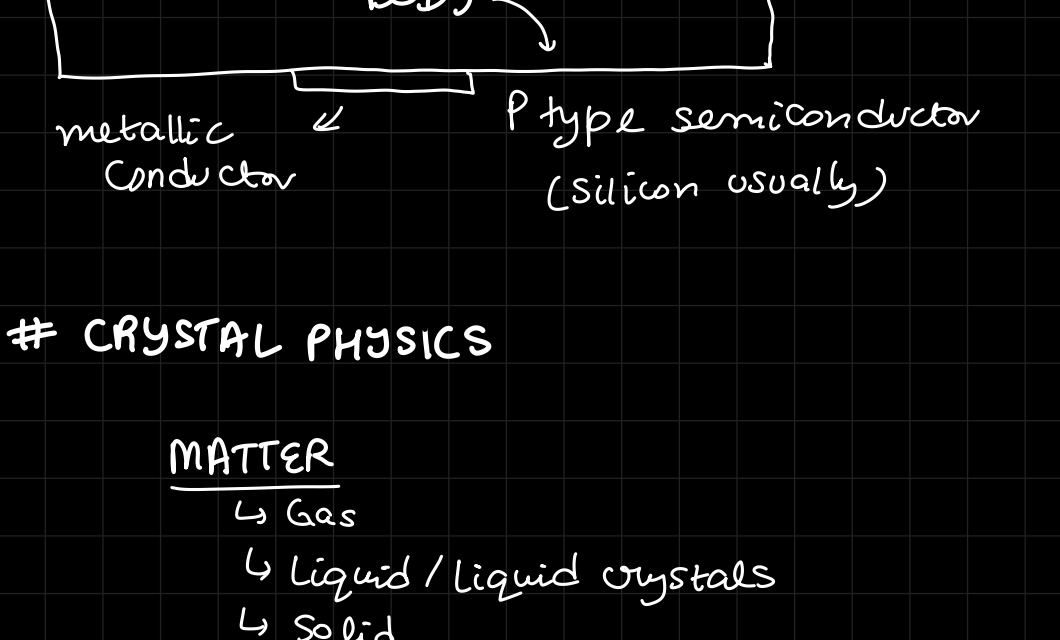 metallic
conductor
P type semiconductor
(silicon usually)
# CRYSTAL PHYSICS
MATTER
↳ Gas
↳ Liquid / Liquid crystals
↳ Solid